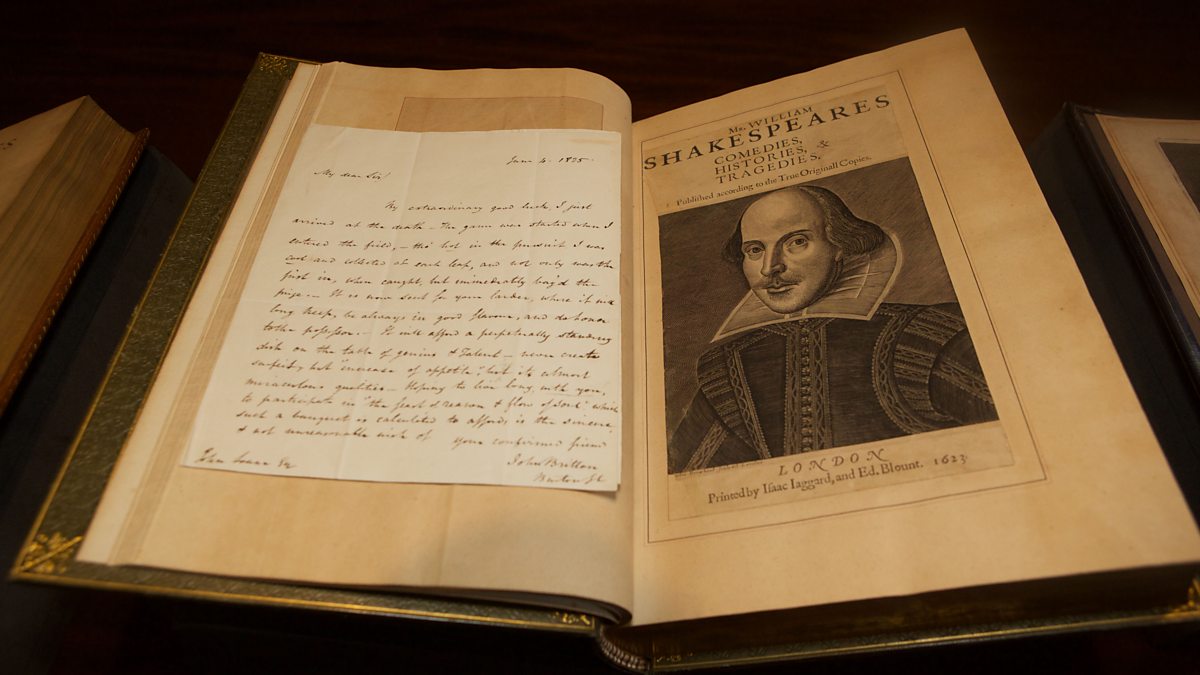 June 4. 1825.
My dear Sir!
By extraordinary good luck, I just
arrived at the death – The game was started when I
entered the field, – tho' hot in the pursuit I was
cool and collected at each leap, and not only was the
first in, when caught, but immediately bag'd the
prize. – It is now sent for your larder, where it will
long keep, be always in good flavour, and do honor
to the possessor. – It will afford a perpetually standing
dish on the table of genius & Talent – never create
surfeit, but "increase of appetite", but its almost
miraculous qualities – Hoping to live long with you,
to participate in "the feast of reason & flow of Soul" which
such a banquet is calculated to afford, is the sincere
& not unreasonable wish of your confirmed friend
John Britton
John Soane Esq
Burton St
Mr. WILLIAM
SHAKESPEARES
COMEDIES,
HISTORIES, &
TRAGEDIES.
Published according to the True Originall Copies.
LONDON
Printed by Isaac Iaggard, and Ed. Blount. 1623